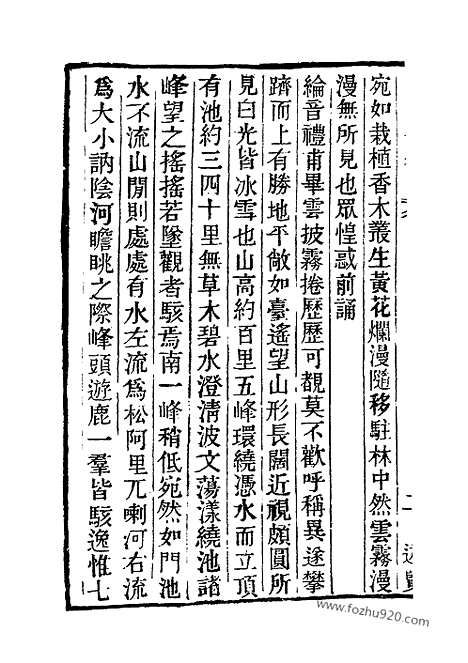 宛如栽植香木叢生黃花爛漫隨移駐林中然雲霧漫
漫無所見也眾惶惑前誦
綸音禮甫畢雲披霧捲歷歷可覩莫不歡呼稱異遂攀
躋而上有勝地平敞如臺遙望山形長闊近視頗圓所
見白光皆冰雪也山高約百里五峰環繞憑水而立頂
有池約三四十里無草木碧水澄淸波文蕩漾繞池諸
峰望之搖搖若墜觀者駭焉南一峰稍低宛然如門池
水不流山閒則處處有水左流爲松阿里兀喇河右流
爲大小訥陰河瞻眺之際峰頭遊鹿一羣皆駭逸惟七
www.fozhu920.com